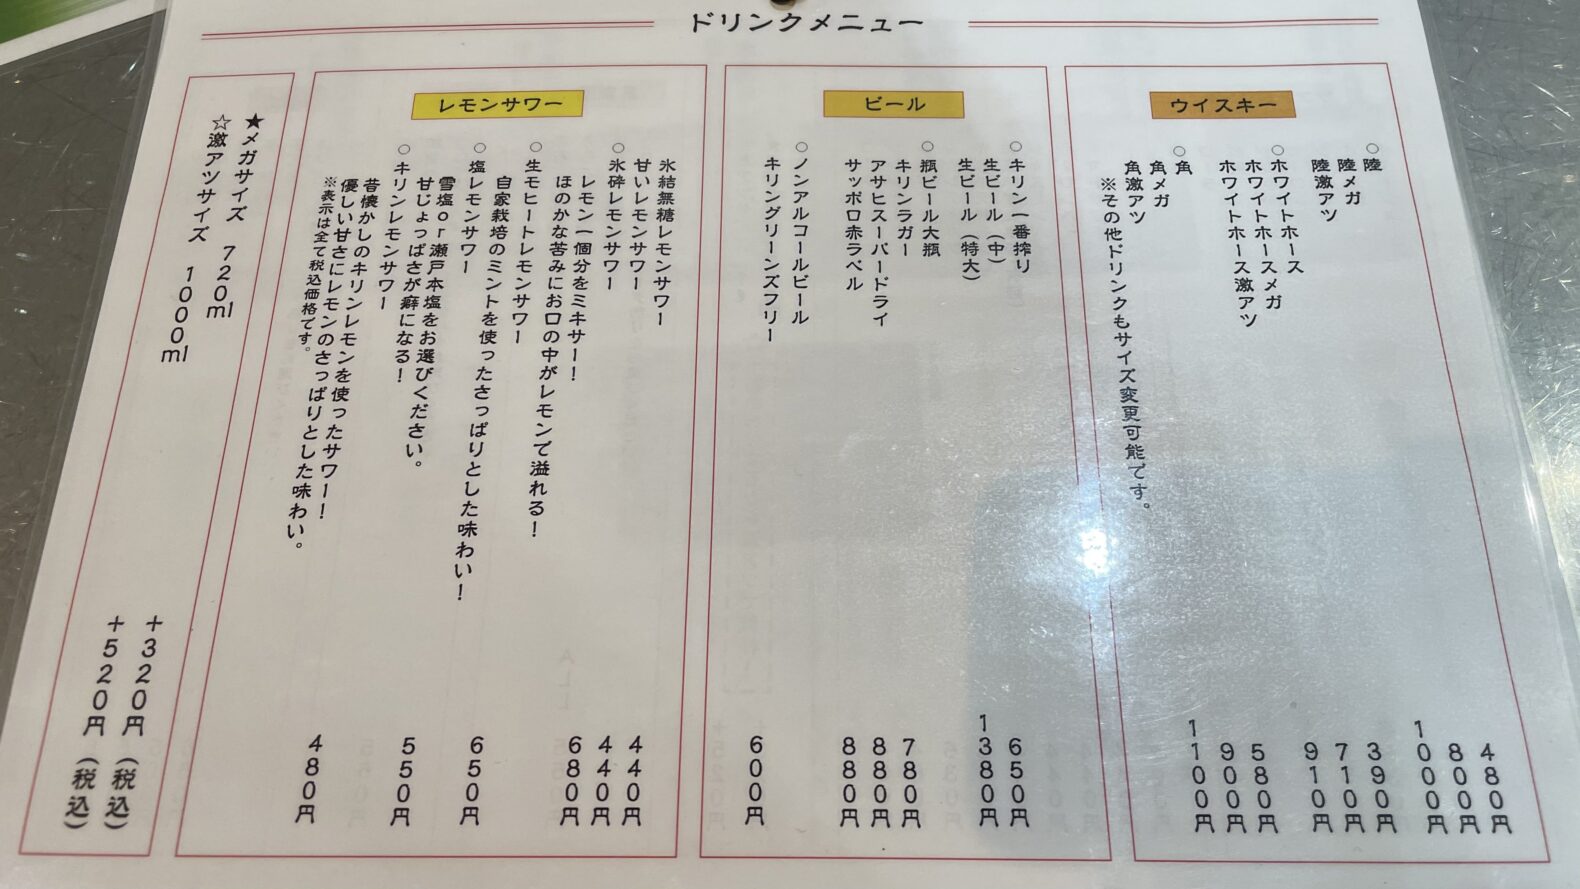 ドリンクメニュー
ウイスキー
○陸 480円
陸メガ 800円
陸激アツ 1000円
○ホワイトホース 390円
ホワイトホースメガ 710円
ホワイトホース激アツ 910円
○角 580円
角メガ 900円
角激アツ 1100円
※その他ドリンクもサイズ変更可能です。
ビール
○キリン一番搾り
生ビール（中） 650円
生ビール（特大） 1380円
○瓶ビール大瓶
キリンラガー 780円
アサヒスーパードライ 880円
サッポロ赤ラベル 880円
○ノンアルコールビール
キリングリーンズフリー 600円
レモンサワー
氷結無糖レモンサワー 440円
甘いレモンサワー 440円
○氷砕レモンサワー 680円
レモン一個分をミキサー！
ほのかな苦みにお口の中がレモンで溢れる！
○生モヒートレモンサワー 650円
自家栽培のミントを使ったさっぱりとした味わい！
○塩レモンサワー 550円
雪塩or瀬戸本塩をお選びください。
甘じょっぱさが癖になる！
○キリンレモンサワー 480円
昔懐かしのキリンレモンを使ったサワー！
優しい甘さにレモンのさっぱりとした味わい。
※表示は全て税込価格です。
★メガサイズ 720ml +320円（税込）
☆激アツサイズ 1000ml +520円（税込）